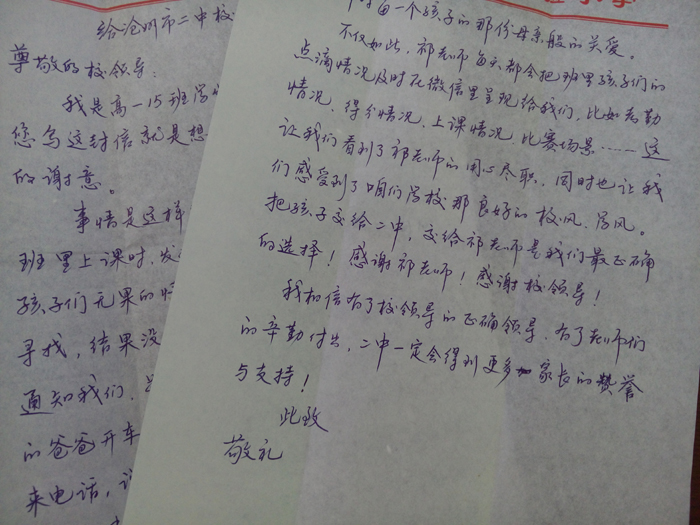 给沧州市二中校
尊敬的校领导:
我是高一15班学
您写这封信就是想
的谢意。
事情是这样
班里上课时,发
孩子们无果的情
寻找,结果没
通知我们.
的爸爸开车
来电话,说
每一个孩子的那份母亲般的关爱。
不仅如此,祁老师每天都会把班里孩子们的
点滴情况及时在微信里呈现给我们,比如考勤
情况、得分情况、上课情况、比赛场景……这
让我们看到了祁老师的用心尽职、同时也让我
们感受到了咱们学校那良好的校风、学风。
把孩子交给二中,交给祁老师是我们最正确
的选择!感谢祁老师!感谢校领导!
我相信有了校领导的正确领导、有了老师们
的辛勤付出,二中一定会得到更多家长的赞誉
与支持!
此致
敬礼